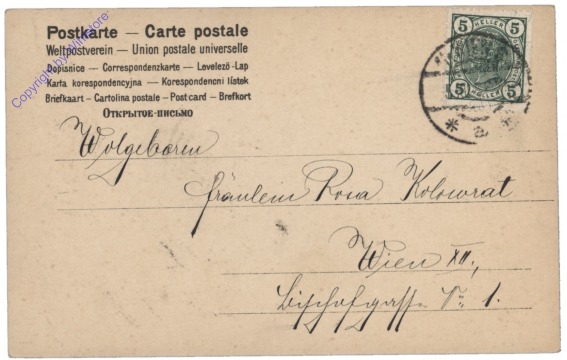 Postkarte — Carte postale
Weltpostverein — Union postale universelle
Dopisnice — Correspondenzkarte — Levelező-Lap
Karta korespondencyjna — Korespondencni listek
Briefkaart — Cartolina postale — Post card — Brefkort
Открытое-письмо
Copyright by Allmystore
5 HELLER 5
5 HELLER 5
Wolgeboren
fräulem Rosa Kolowrat
Wien XII.,
Bischofgasse No 1.